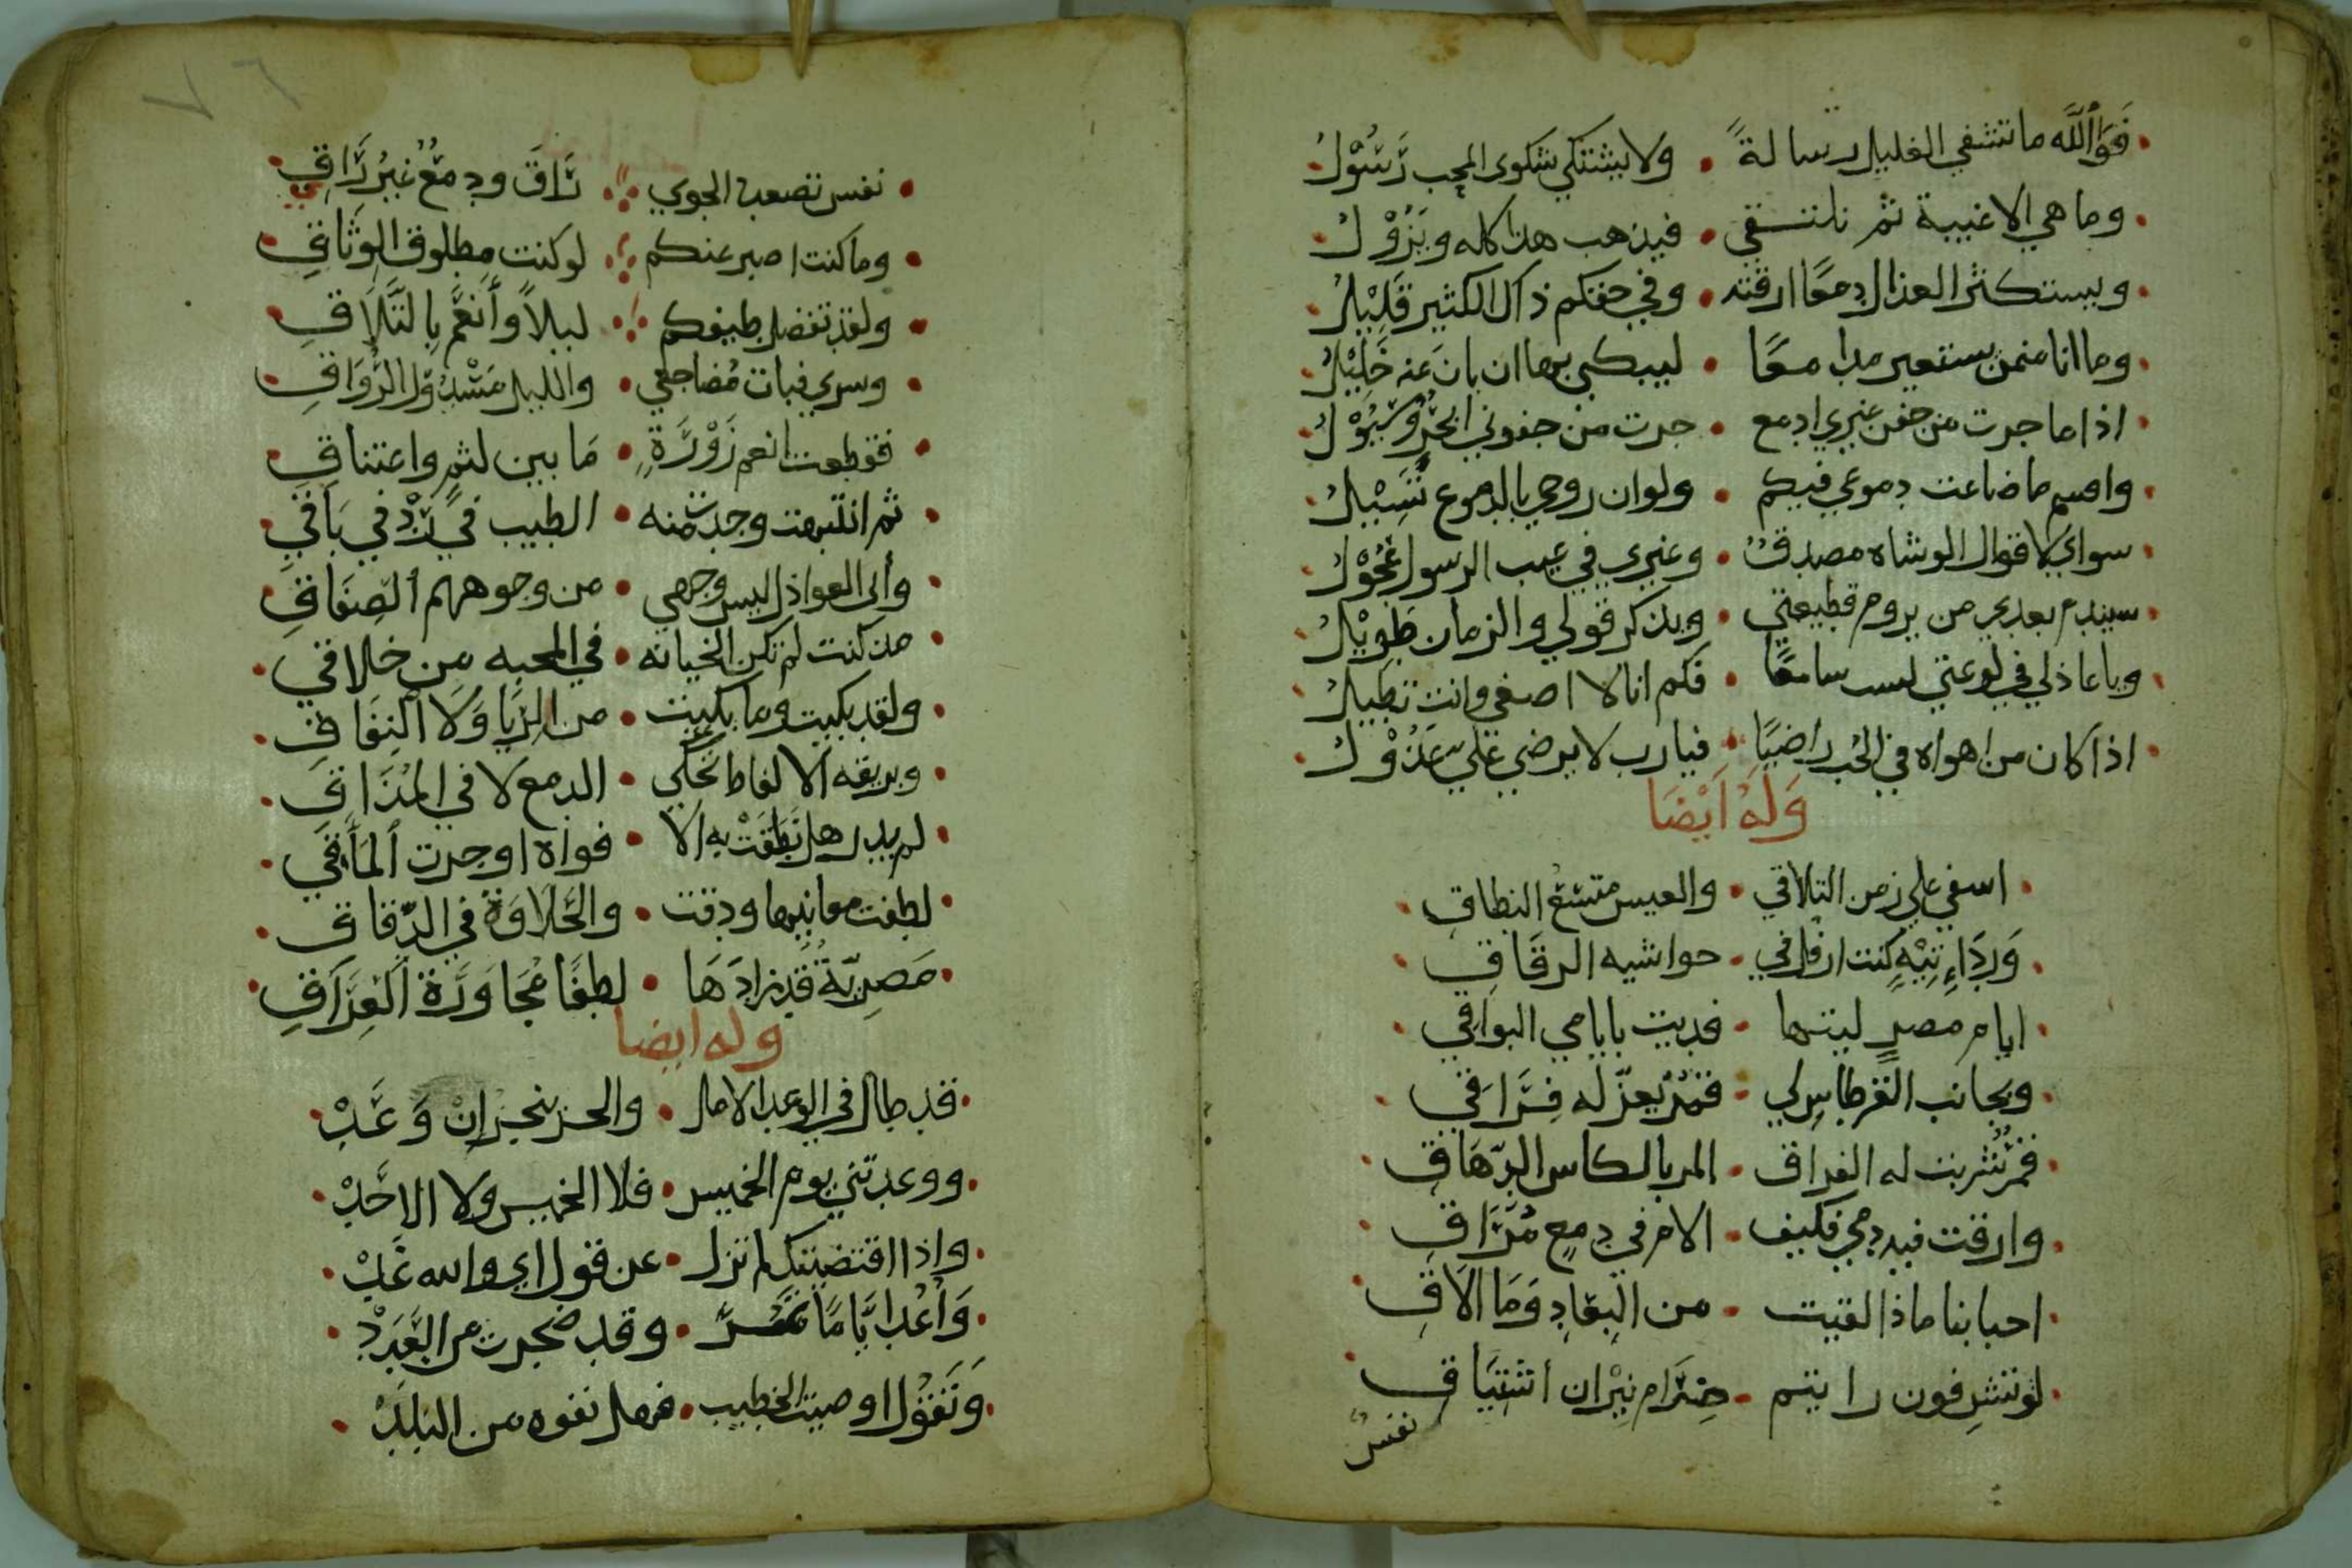 فَوَاللَّه ما تشفي الغليل رسالةً • ولا يشتكي شكوى المحب رَسُوْلُ
وما هي الا غيبة ثم نلتقي • فيذهب هذا كله ويَزُوْلُ
ويستكثر العذال دمعًا ارقته • وفي حقكم ذاك الكثير قَلِيْلُ
وما انا ممن يستعير مدامعًا • ليبكي بها ان بانَ عنه خَلِيْلُ
اذا ما جرت من جفن غيري ادمع • جرت من جفوني ابحُرٌ وسُيُوْلُ
واقسم ما ضاعت دموعي فيكم • ولو ان روحي بالدموع تَسِيْلُ
سواي لاقوال الوشاه مصدقٌ • وغيري في عيب الرسول عَجُوْلُ
سيندم بعدي من يروم قطيعتي • ويذكر قولي والزمان طَوِيْلُ
ويا عاذلي في لوعتي لست سامعًا • فكم انا لا اصغي وانت تطيلُ
اذا كان من اهواه في الحُب راضيًا • فيارب لا يرضي عَلَي عَذُوْلُ
وَلَهُ اَيْضَا
اسفي علي زمن التلاقي • والعيس متسع النطاقِ
وَرِدَاءِ تِيْهٍ كنت ارفل في • حواشيه الرقَاقِ
ايام مصرٍ ليتها • فديت بايامي البواقي
وبجانب الفرطاس لي • قمرٌ يعزّ له فِرَاقي
قمرٌ شربت له الفراق • المر بالكاس الدّهَاقِ
وارقت فيه دمي فكيف • الام في دمعٍ مُرَاقِ
احبابنا ماذا لقيت • من البِعَادِ وَمَا الَاقِ
لو تشرفون رايتم • ضِرَام نِيْران اشتيَاقِ
نفسٌ
٧٦
نفس تصعب الجوي • رَاقَ ودمعٌ غيرُ رَاقِ
وما كنت اصبر عنكم • لو كنت مطلوق الوِثَاقِ
ولقد تفضل طيفكم • ليلاً وأنعَمَ بِالتَّلَاقِ
وسري فبات مُضاجعي • والليل مَسْدُوْل الرُّوَاقِ
فقطعت انعم زَوْرَةٍ • مَا بين لثمٍ واعتناقِ
ثم انتبهت وجدت منه • الطيب في بُرْدِي بَاقي
وأري العواذل ليس وجهي • من وجوههم الصِفَاقِ
مذ كنت لم تكن الخيانه • في المحبه من خلاقي
ولقد بكيت وما بكيت • من الرِّيَا وَلَا النِفَاقِ
وبريقه الالفاظ تحكي • الدمع لا في المُذَاقِ
لم يدر هل نَطَقَتْ به الا • فواه او جرت المَأَقي
لطفت معانيها ودقت • والحَلَاوَةُ في الدِّقَاقِ
مَصرِيّةٌ قد زادَهَا • لطفًا مُجَاوَرَة العِرَاقِ
وله ايضا
قد طال في الوعد الامد • والحر ينجز انْ وَعَدْ
ووعدتني يوم الخميس • فلا الخميس ولا الاحَدْ
واذا اقتضيتك لم تزل • عن قول اي والله غَدْ
وَأعُد ايَّامًا تمُرّ • وقد ضجرت من العَدَدْ
وَتَقُوْل اوصيت الخطيب • فهل نفوه من البَلَدْ